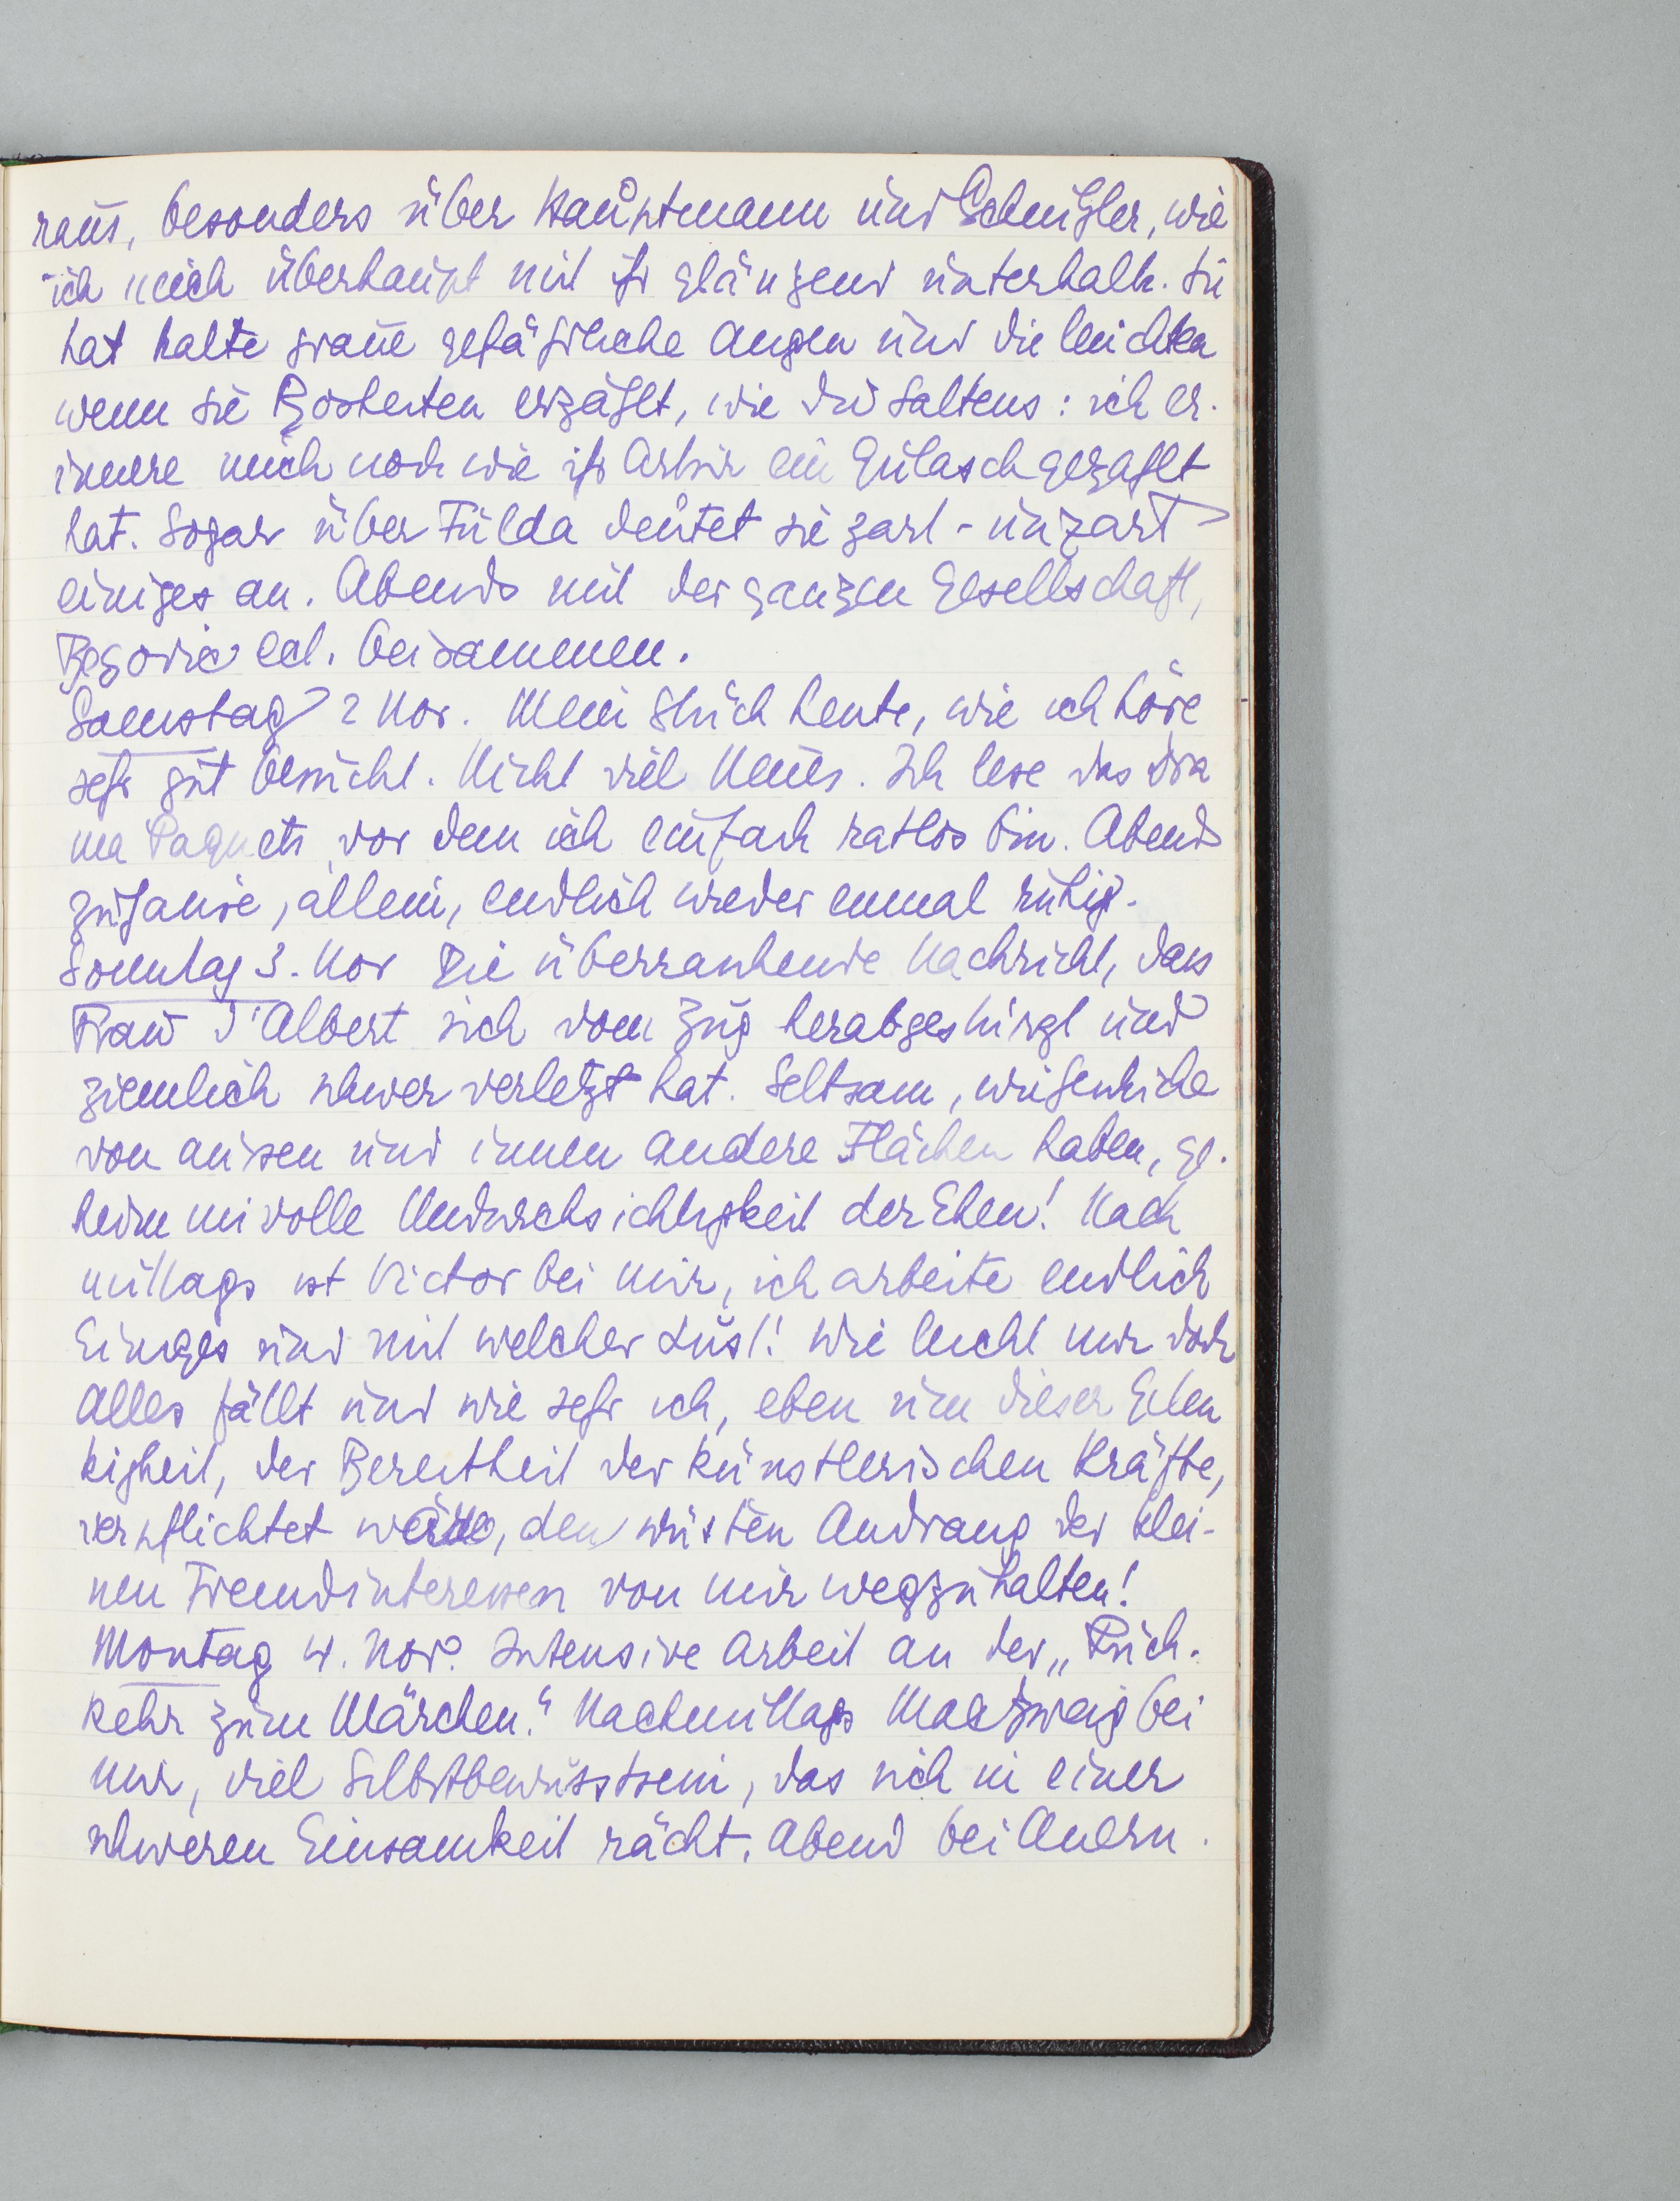 raus, besonders über Hauptmann und Schnitzler, wie
ich mich überhaupt mit ihr glänzend unterhalte. Sie
hat kalte graue gefährliche Augen und die leuchten
wenn sie Bosheiten erzählt, wie die Saltens: ich er-
innere mich noch wie ihr Arthur ein Gulasch gezahlt
hat. Sogar über Fulda deutet sie zart-unzart
einiges an. Abends mit der ganzen Gesellschaft,
Begovic ect. beisammen.
Samstag 2 Nov. Mein Stück heute, wie ich höre
sehr gut besucht. Nicht viel Neues. Ich lese das Dra
ma Paquets vor dem ich einfach ratlos bin. Abends
zuhause, allein, endlich wieder einmal ruhig.
Sonntag 3. Nov Die überraschende Nachricht, dass
Frau d'Albert sich vom Zug herabgestürzt und
ziemlich schwer verletzt hat. Seltsam, wie Geschicke
von aussen und innen andere Flächen haben, ge-
heimnisvolle Undurchsichtigkeit der Ehen! Nach
mittags ist Victor bei mir, ich arbeite endlich
Einiges und mit welcher Lust! Wie leicht mir doch
Alles fällt und wie sehr ich, eben um dieser Gelen
kigkeit, der Bereitheit der künstlerischen Kräfte,
verpflichtet wäre, den wüsten Andrang der klei-
nen Fremdinteressen von mir wegzuhalten!
Montag 4. Nov. Intensive Arbeit an der „Rück-
kehr zum Märchen." Nachmittags Max Zweig bei
mir, viel Selbstbewusstsein, das sich in einer
schweren Einsamkeit rächt. Abend bei Auern.